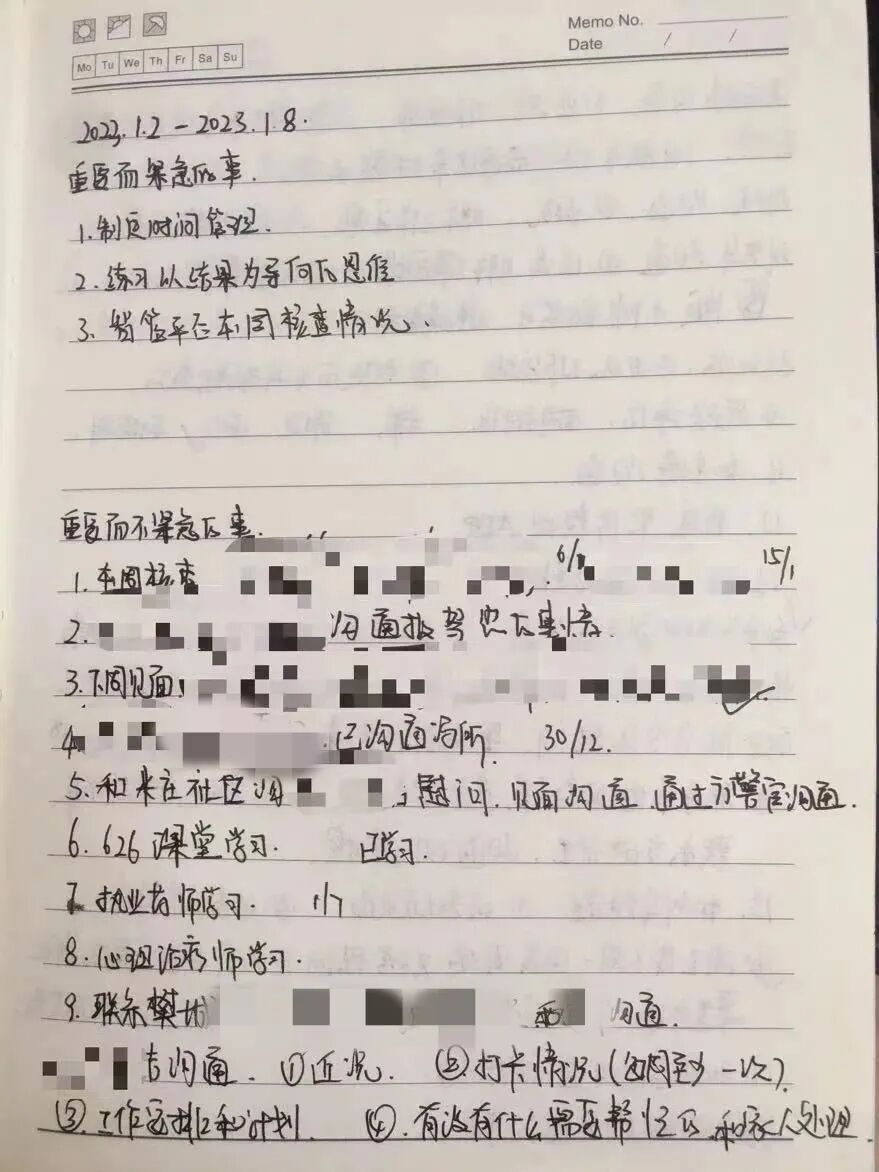 Memo No.
Date / /
Mo Tu We Th Fr Sa Su
2023.1.2 - 2023.1.8.
重要而紧急的事.
1.制定时间管理.
2.练习以结果为导向的思维
3.智管平台本周核查情况.
重要而不紧急的事.
1.本周核查 6/1 15/1
2. 沟通报驾照的事情.
3.下周见面:
4. 已沟通场所. 30/12.
5.和来庄社区沟 慰问.见面沟通 通过方警官沟通.
6.626课堂学习. 已学习.
7.执业药师学习. 1/7
8.心理治疗师学习.
9.联系樊城 和 沟通.
去沟通. ①近况. ②打卡情况(每周至少一次).
③.工作安排和计划. ④.有没有什么需要帮忙的.和家人处理.